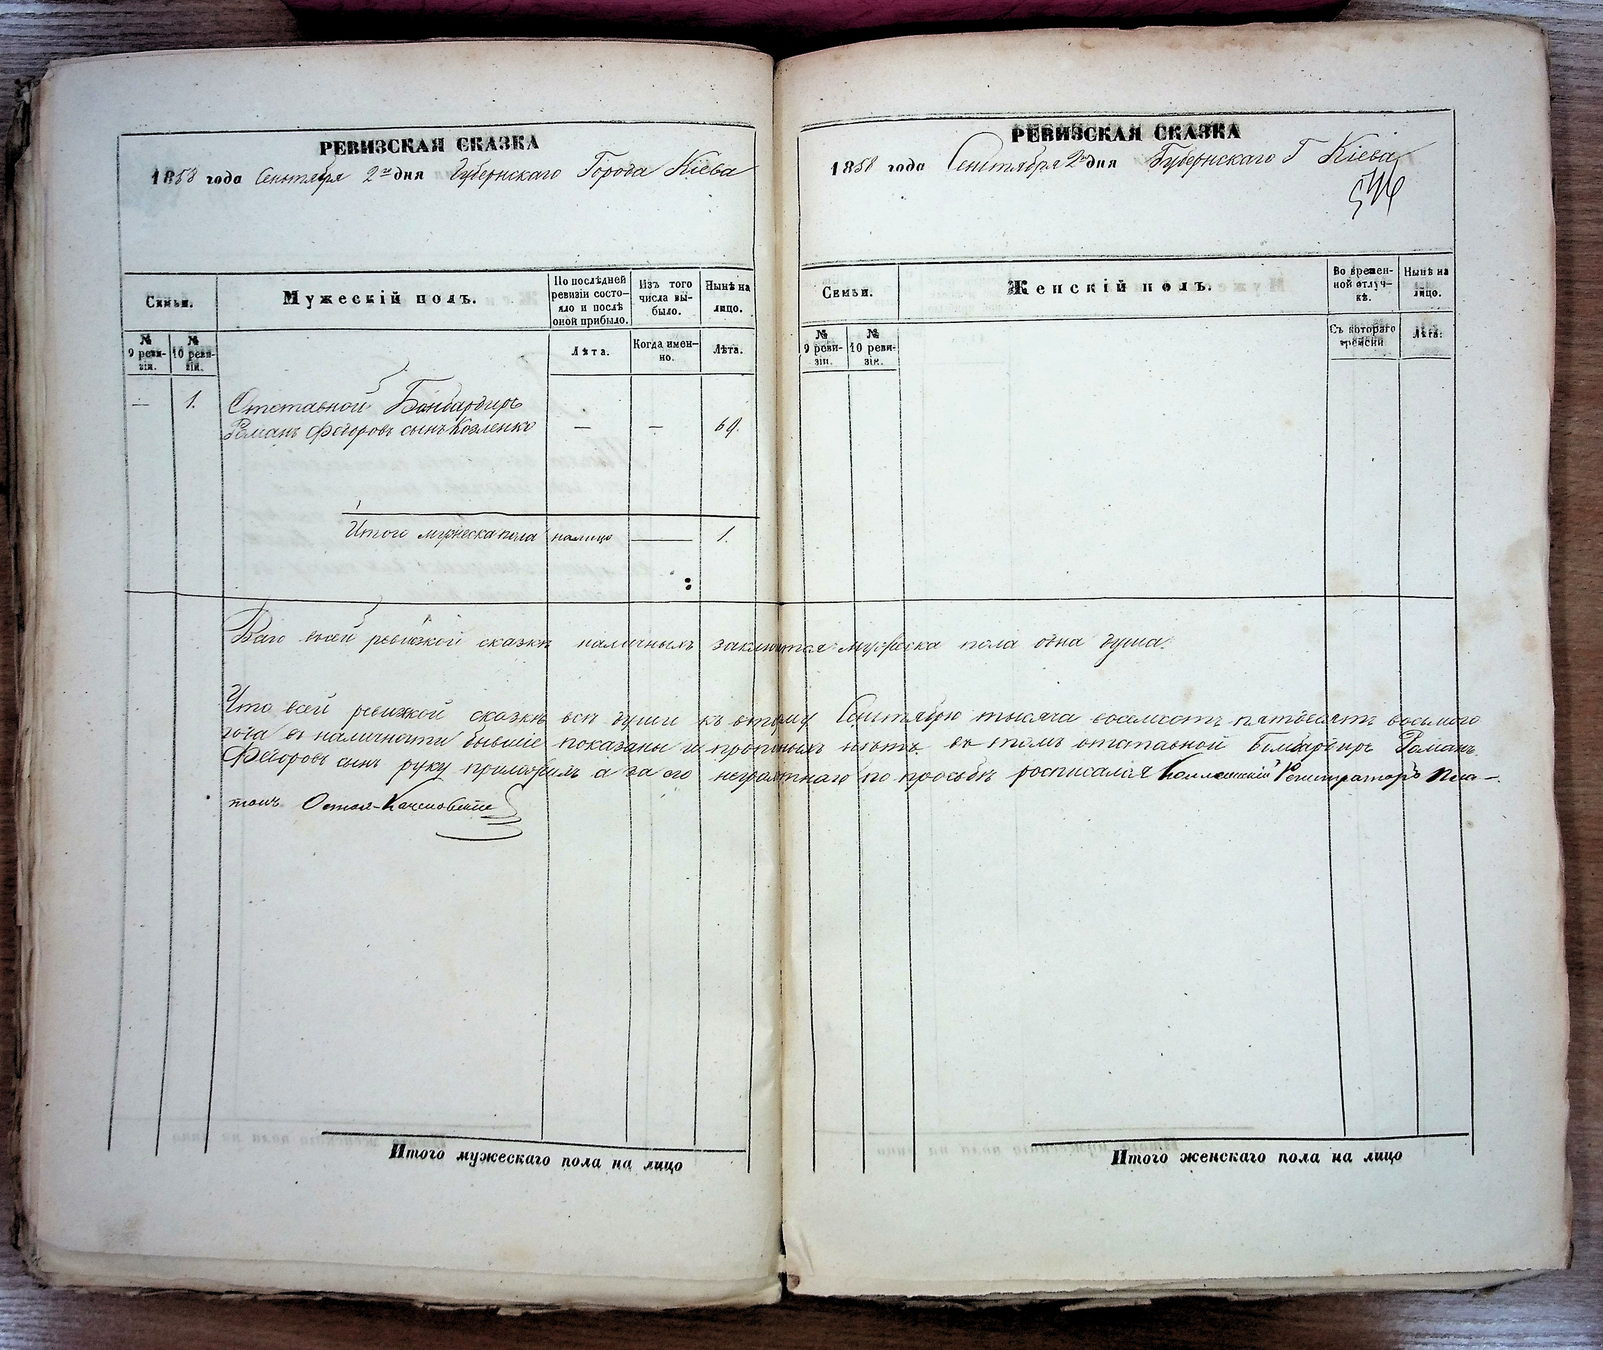 РЕВИЗСКАЯ СКАЗКА
1858 года Сентября 2го дня Губернскаго Города Кіева
Семьи.
Мужескій полъ.
По послѣдней ревизіи состо-
яло и послѣ оной прибыло.
Изъ того числа вы-
было.
Нынѣ на лицо.
№ 9 реви-
зіи.
№ 10 реви-
зіи.
Лѣта.
Когда имен-
но.
Лѣта.
— 1. Отставной Бомбардиръ
Романъ Федоровъ сынъ Козленко — — 69.
Итого мужеска пола налицо — 1.
РЕВИЗСКАЯ СКАЗКА
1858 года Сентября 2го дня Губернскаго Г Кіева
546
Семьи.
Женскій полъ.
Во времен-
ной отлуч-
кѣ.
Нынѣ на лицо.
№ 9 реви-
зіи.
№ 10 реви-
зіи.
Съ котораго времени
Лѣта.
всей ревизкой сказкѣ наличныхъ заключается мужеска пола одна душа.
Что всей ревизкой сказкѣ всѣ души къ второму Сентябрю тысяча восемсотъ пятдесятъ восьмого
года въ наличности бывшіе показаны и прописныхъ нѣтъ въ томъ отставной Бомбардиръ Романъ
Федоровъ сынъ руку приложилъ а за его неграмотнаго по просьбѣ росписался Коллежскій Регистраторъ Пла-
тонъ
Итого мужескаго пола на лицо
Итого женскаго пола на лицо